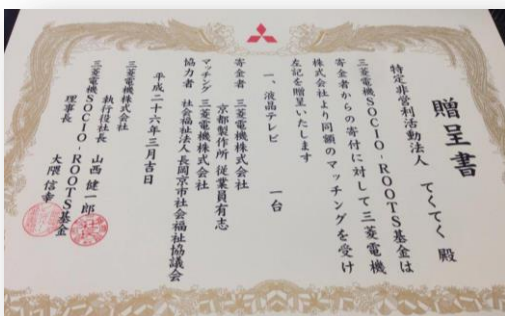 贈呈書
特定非営利活動法人 てくてく 殿
三菱電機SOCIO-ROOTS基金は
寄金者からの寄付に対して三菱電機
株式会社より同額のマッチングを受け
左記を贈呈いたします
一、液晶テレビ 一台
寄金者 三菱電機株式会社
京都製作所 従業員有志
マッチング 三菱電機株式会社
協力者 社会福祉法人長岡京市社会福祉協議会
平成二十六年三月吉日
三菱電機株式会社
執行役社長 山西 健一郎
三菱電機SOCIO-ROOTS基金
理事長 大隈 信幸